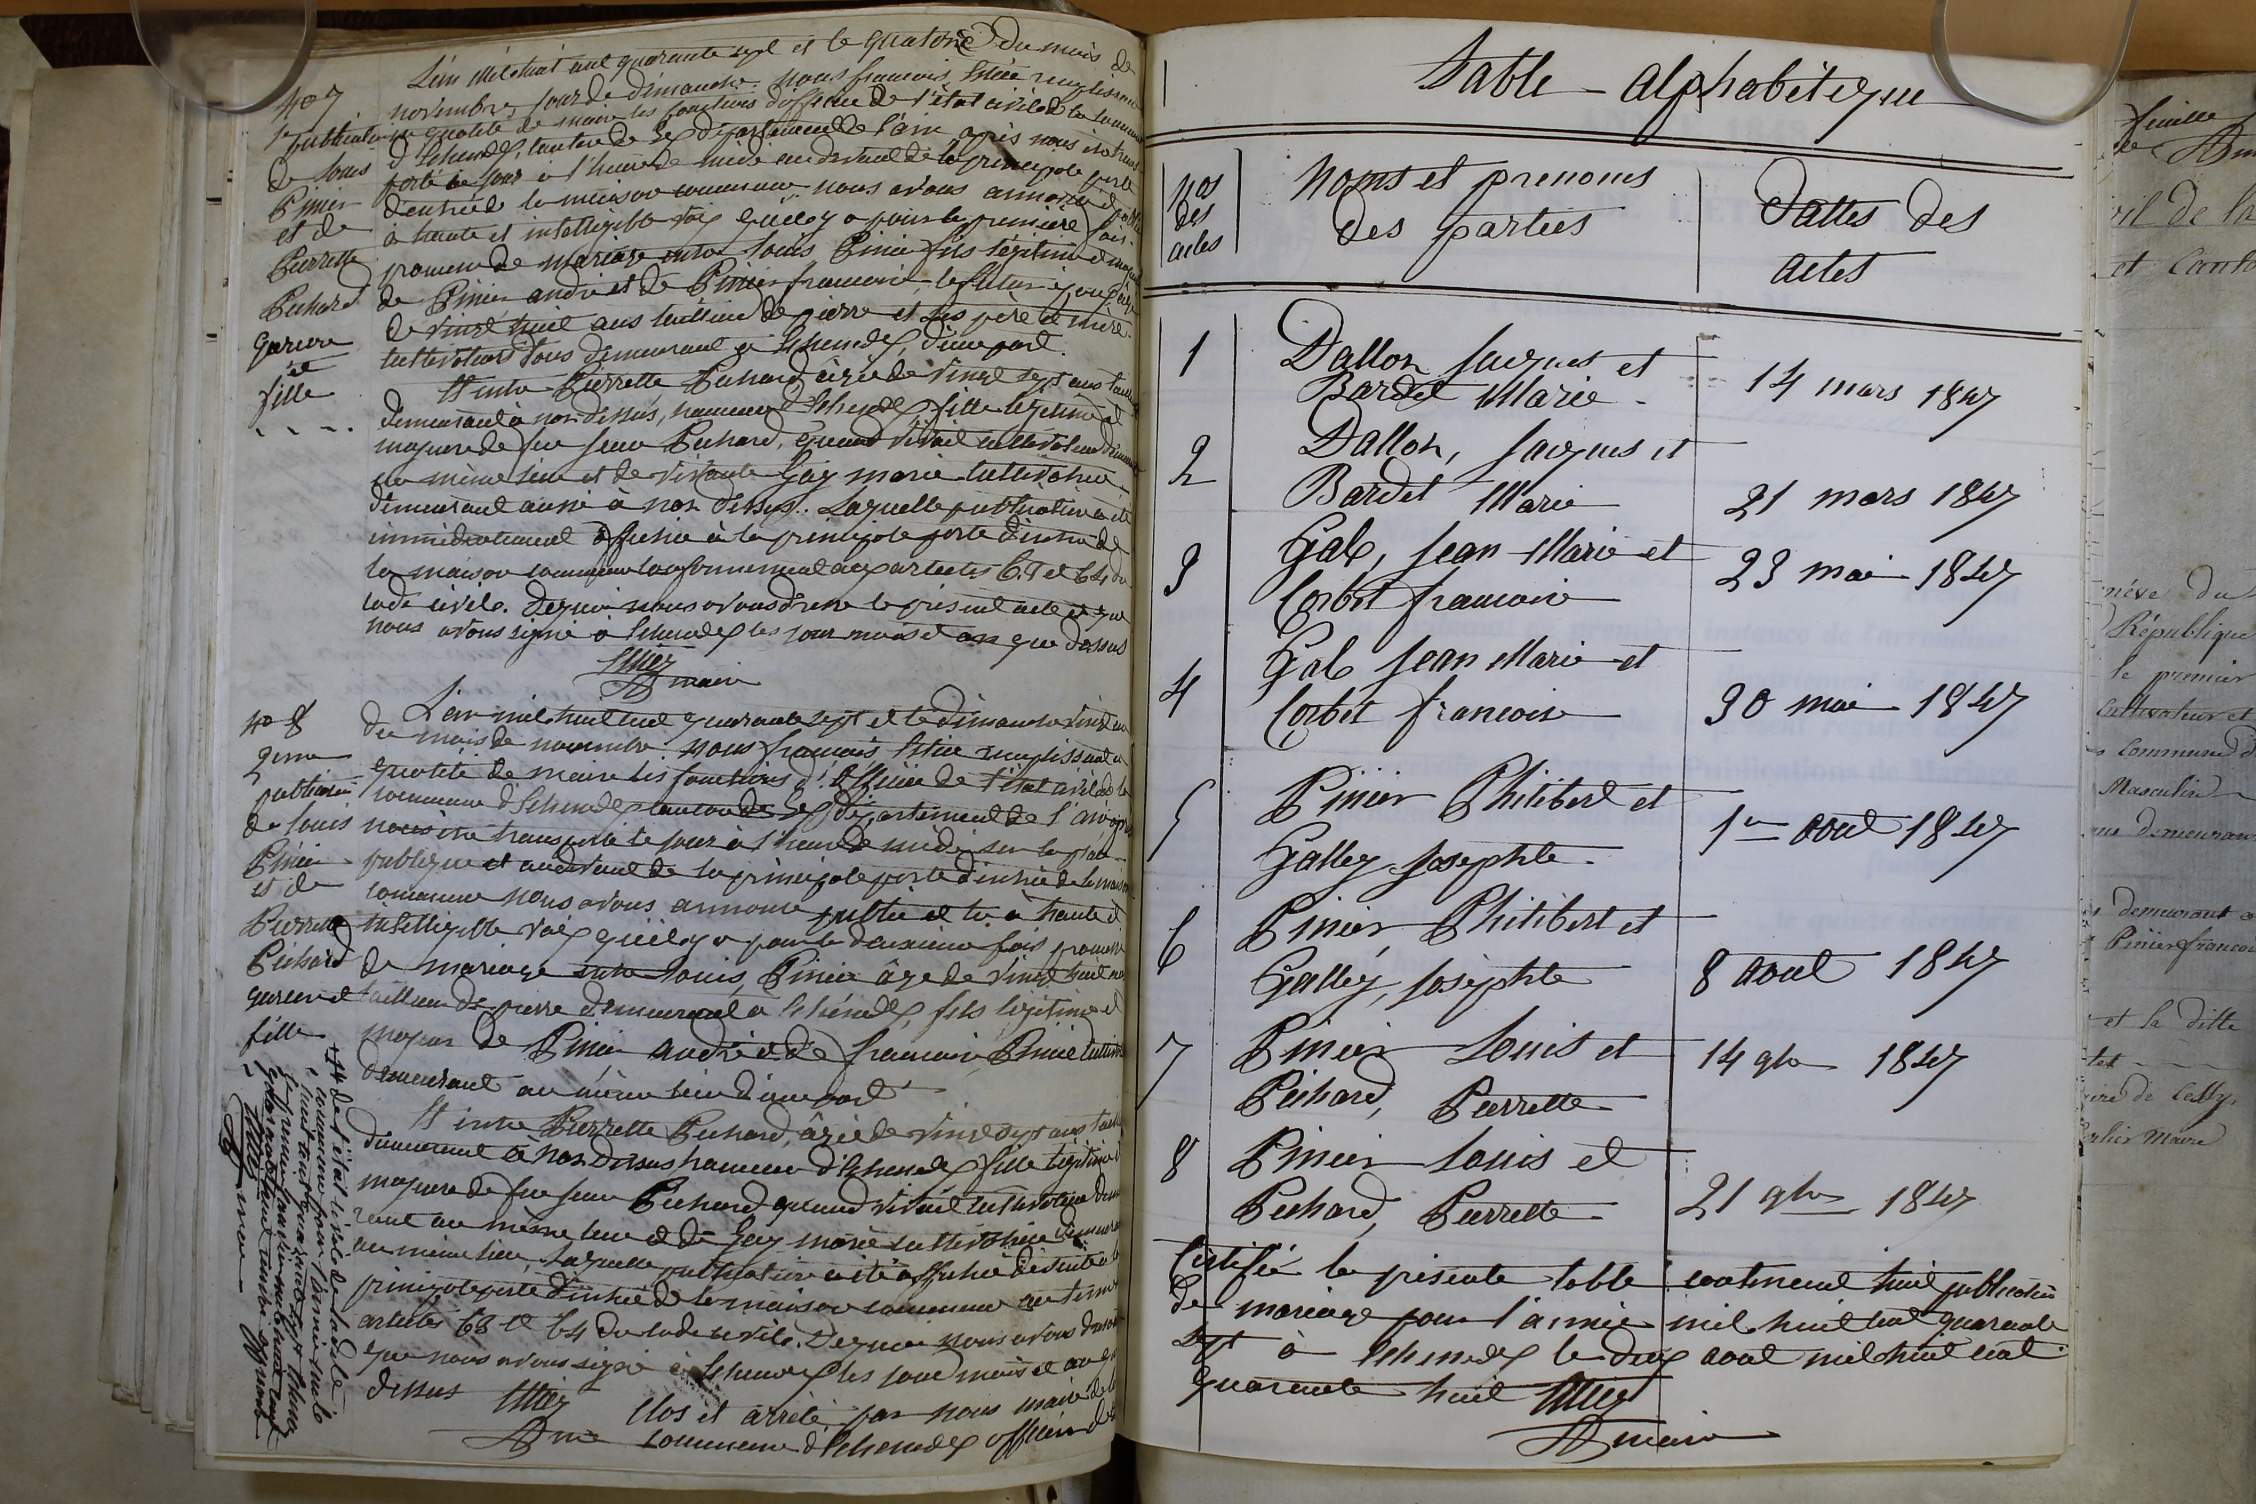 No 7
1re publication
de Louis
Pinier
et de
Pierrette
Pichard
garcon
et
fille
L'an mil huit cent quarante sept et le quatorze du mois de
novembre, jour de dimanche. Nous francois remplissant
en qualité de maire les fonctions d'officier de l'état civil de la commune
d'Echenevex, canton de Gex département de l'ain après nous être trans
porté ce jour à l'heure de midi au devant de la principale porte
d'entrée de la maison commune nous avons annoncé
à haute et intelligible voix qu'il y a pour la première fois
promesse de mariage entre Louis Pinier fils légitime et majeur
de Pinier andré et de Pinier francoise, le futur époux âgé
de vingt huit ans tailleur de pierre et ses père et mère
cultivateurs tous demeurant à Echenevex, d'une part.
Et entre Pierrette Pichard, âgée de vingt sept ans
demeurant à nos dessus, hameau d'Echenevex fille légitime et
majeure de feu Jean Pichard, quand vivait cultivateur
au même lieu et de vivante Gay marie cultivatrice
demeurant aussi à nos dessus. Laquelle publication a été
immédiatement affichée à la principale porte d'entrée de
la maison commune conformément aux articles 63 et 64 du
code civil. De quoi nous avons dressé le présent acte et que
nous avons signé à Echenevex les jour mois et an que dessus
maire
No 8
2eme
publication
de Louis
Pinier
et de
Pierrette
Pichard
garcon et
fille
L'an mil huit cent quarante sept et le dimanche vingt un
du mois de novembre nous francois remplissant en
qualité de maire les fonctions d'officier de l'état civil de la
commune d'Echenevex canton de Gex département de l'ain après
nous être transporté ce jour à l'heure de midi sur la place
publique et au devant de la principale porte d'entrée de la maison
commune nous avons annoncé publié et lu à haute et
intelligible voix qu'il y a pour la deuxième fois promesse
de mariage entre Louis, Pinier âgé de vingt huit ans
tailleur de pierre demeurant à Echenevex, fils légitime et
majeur de Pinier andré et de francoise Pinier
demeurant au même lieu d'une part
Et entre Pierrette Pichard, âgée de vingt sept ans
demeurant à nos dessus hameau d'Echenevex fille légitime et
majeure de feu Jean Pichard quand vivait cultivateur demeu
rant au même lieu et de Gay marie cultivatrice demeurant
au même lieu, Laquelle publication a été affichée de suite à la
principale porte d'entrée de la maison commune au terme
articles 63 et 64 du code civil. De quoi nous avons dressé
que nous avons signé à Echenevex les jour mois et an que
dessus
maire
Clos et arrêté par nous maire de la
commune d'Echenevex officier de
l'état civil de la dite
commune pour l'année mil
huit cent quarante sept Echenevex
le premier janvier mil huit cent
quarante huit
maire
Table alphabétique
Nos
des
actes
Noms et prenoms
des parties
Dattes des
actes
1 Dallon Jacques et
Bardet Marie 14 mars 1847
2 Dallon, Jacques et
Bardet Marie 21 mars 1847
3 Gab, Jean Marie et
Corbet francoise 23 mai 1847
4 Gab Jean Marie et
Corbet francoise 30 mai 1847
5 Pinier Philibert et
Galley Josephte 1er aout 1847
6 Pinier, Philibert et
Galley, Josephte 8 aout 1847
7 Pinier Louis et
Pichard, Pierrette 14 9bre 1847
8 Pinier Louis et
Pichard, Pierrette 21 9bre 1847
Certifié la présente table contenant huit publications
de mariage pour l'année mil huit cent quarante
sept à Echenevex le deux aout mil huit cent
quarante huit
maire
feuille
de
et Canto
République
le premier
Cultivateur et
Commune d
Masculin
demeurant
demeurant a
Pinier francoi
et la ditte
Maire